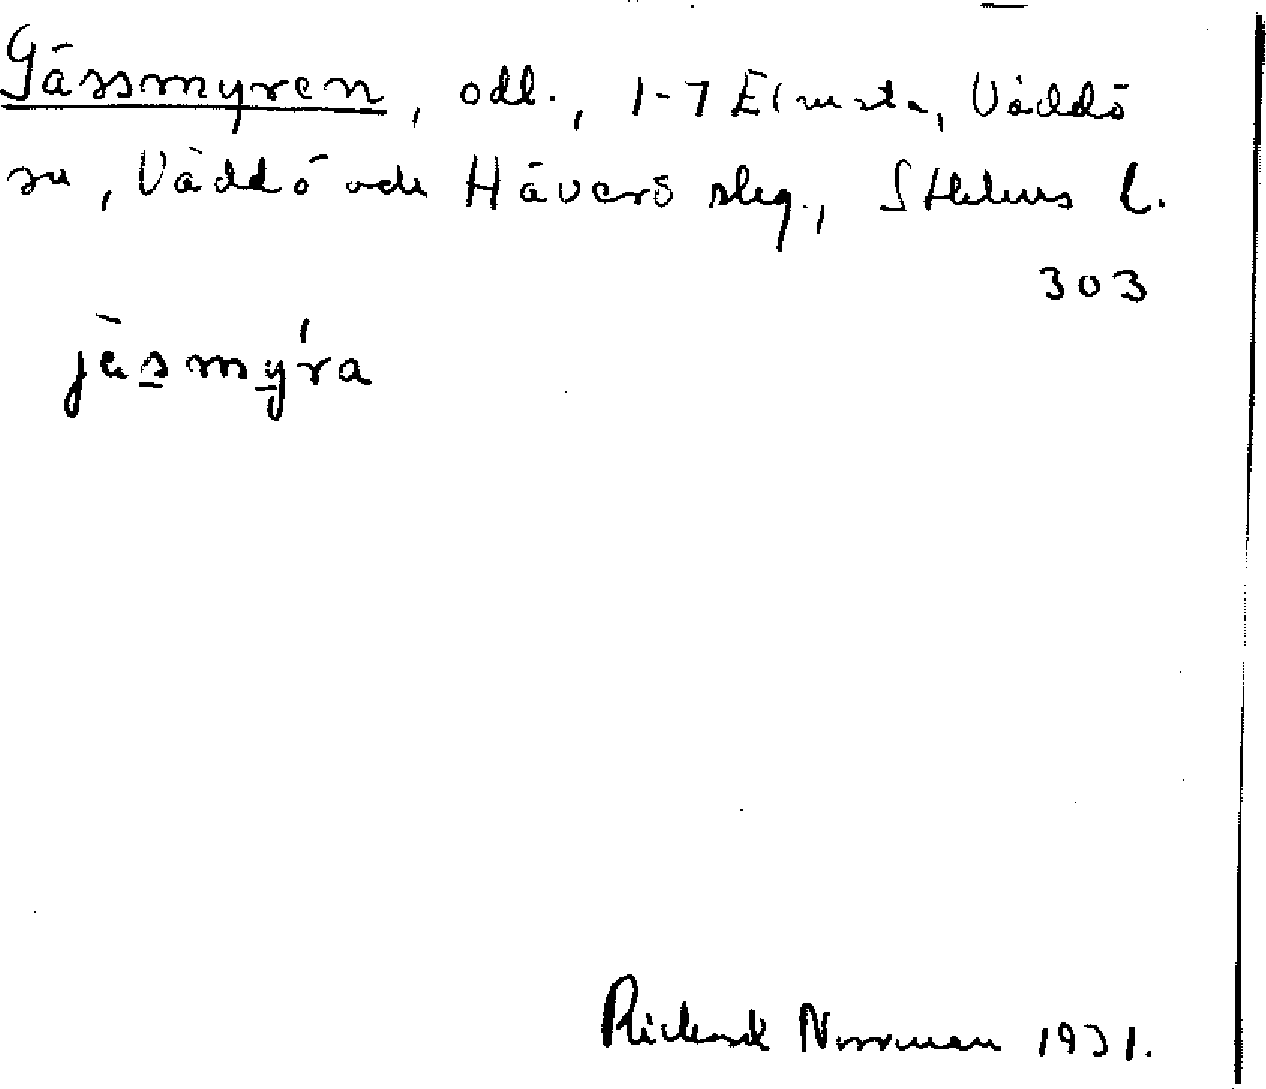 Gässmyren, odl., 1-7 Elmsta, Väddö
sn, Väddö och Häverö slg., Sthlms l.
303
jäsmýra
Rickard Norrman 1931.